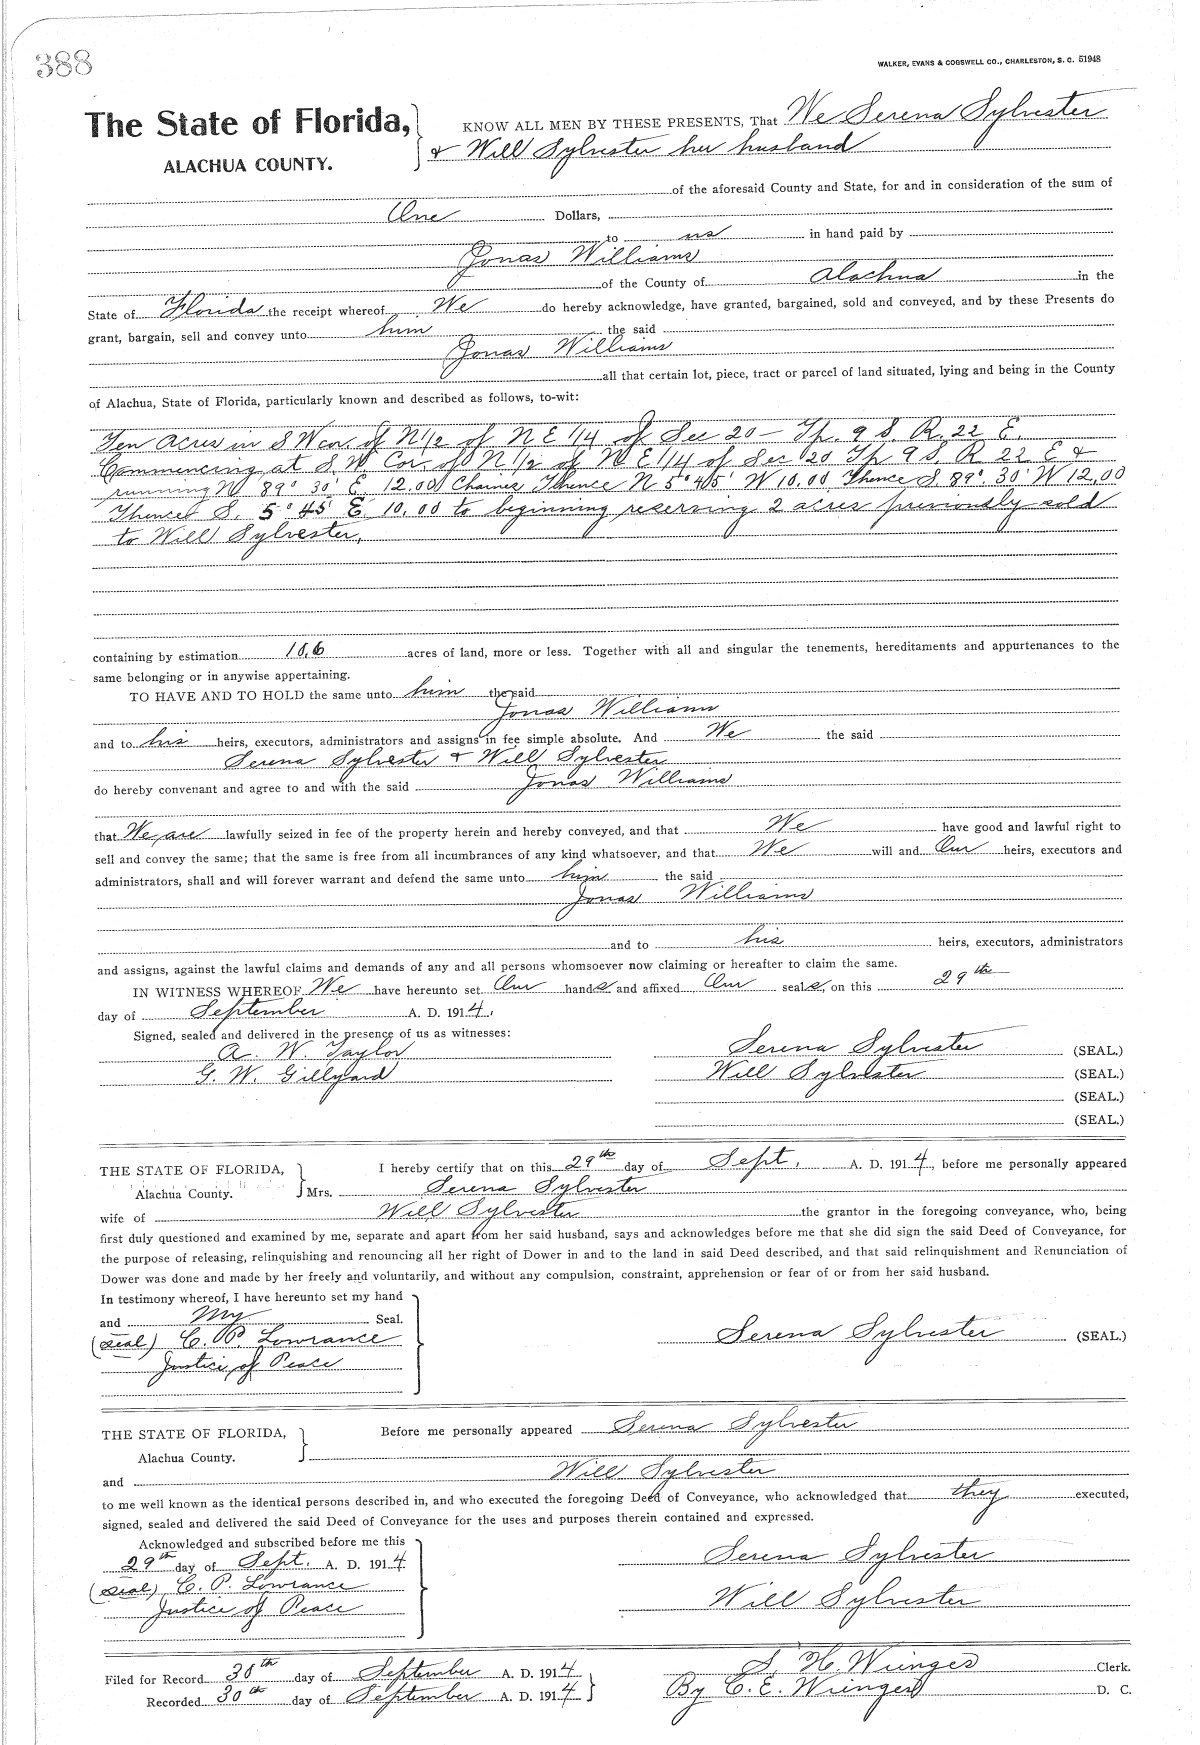 388
WALKER, EVANS & COGSWELL CO., CHARLESTON, S. C. 51948
The State of Florida,
ALACHUA COUNTY.
KNOW ALL MEN BY THESE PRESENTS, That We Serena Sylvester
& Will Sylvester her husband
of the aforesaid County and State, for and in consideration of the sum of
One Dollars,
to us in hand paid by
Jonas Williams
of the County of Alachua in the
State of Florida the receipt whereof We do hereby acknowledge, have granted, bargained, sold and conveyed, and by these Presents do
grant, bargain, sell and convey unto him the said
Jonas Williams
all that certain lot, piece, tract or parcel of land situated, lying and being in the County
of Alachua, State of Florida, particularly known and described as follows, to-wit:
Ten acres in S W cor. of N 1/2 of N E 1/4 of Sec 20 - Tp. 9 S. R. 22 E.
Commencing at S. W. Cor. of N 1/2 of N E 1/4 of Sec 20 Tp 9 S R 22 E &
running N 89° 30' E. 12.00 Chaines Thence N 5° 45' W 10.00 Thence S. 89° 30' W 12,00
Thence S. 5° 45' E. 10.00 to beginning reserving 2 acres previously sold
to Will Sylvester,
containing by estimation acres of land, more or less. Together with all and singular the tenements, hereditaments and appurtenances to the
same belonging or in anywise appertaining.
TO HAVE AND TO HOLD the same unto him the said
Jonas Williams
and to his heirs, executors, administrators and assigns in fee simple absolute. And We the said
Serena Sylvester & Will Sylvester
do hereby convenant and agree to and with the said Jonas Williams
that We are lawfully seized in fee of the property herein and hereby conveyed, and that We have good and lawful right to
sell and convey the same; that the same is free from all incumbrances of any kind whatsoever, and that We will and Our heirs, executors and
administrators, shall and will forever warrant and defend the same unto him the said
Jonas Williams
and to his heirs, executors, administrators
and assigns, against the lawful claims and demands of any and all persons whomsoever now claiming or hereafter to claim the same.
IN WITNESS WHEREOF We have hereunto set Our hands and affixed Our seals, on this 29th
day of September A. D. 1914,
Signed, sealed and delivered in the presence of us as witnesses:
A. W. Taylor Serena Sylvester (SEAL.)
G. W. Gillyard Will Sylvester (SEAL.)
(SEAL.)
(SEAL.)
THE STATE OF FLORIDA, I hereby certify that on this 29th day of Sept. A. D. 1914, before me personally appeared
Alachua County. Mrs. Serena Sylvester
wife of Will Sylvester the grantor in the foregoing conveyance, who, being
first duly questioned and examined by me, separate and apart from her said husband, says and acknowledges before me that she did sign the said Deed of Conveyance, for
the purpose of releasing, relinquishing and renouncing all her right of Dower in and to the land in said Deed described, and that said relinquishment and Renunciation of
Dower was done and made by her freely and voluntarily, and without any compulsion, constraint, apprehension or fear of or from her said husband.
In testimony whereof, I have hereunto set my hand
and my Seal.
(seal) C. P. Lowrance Serena Sylvester (SEAL.)
Justice of Peace
THE STATE OF FLORIDA, Before me personally appeared Serena Sylvester
Alachua County.
and Will Sylvester
to me well known as the identical persons described in, and who executed the foregoing Deed of Conveyance, who acknowledged that they executed,
signed, sealed and delivered the said Deed of Conveyance for the uses and purposes therein contained and expressed.
Acknowledged and subscribed before me this
29th day of Sept. A. D. 1914 Serena Sylvester
(seal) C. P. Lowrance Will Sylvester
Justice of Peace
Filed for Record 30th day of September A. D. 1914 S. H. Wienges Clerk.
Recorded 30th day of September A. D. 1914 By C. E. Wienges D. C.